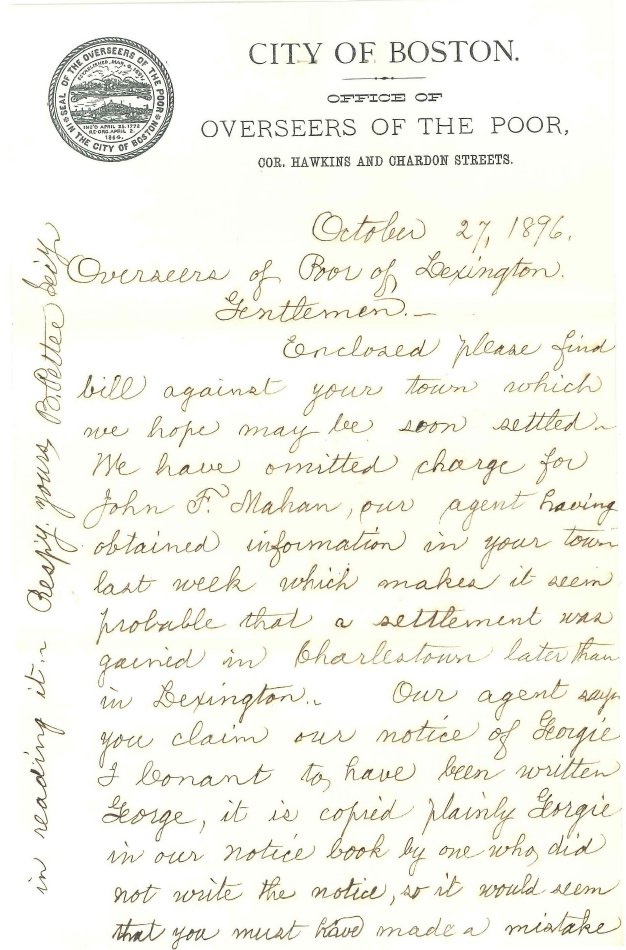 SEAL OF THE OVERSEERS OF THE POOR
IN THE CITY OF BOSTON
INC'D APRIL 25, 1772
RE-ORG. APRIL 2,
1864.
CITY OF BOSTON.
OFFICE OF
OVERSEERS OF THE POOR,
COR. HAWKINS AND CHARDON STREETS.
October 27, 1896.
Overseers of Poor of Lexington.
Gentlemen.—
Enclosed please find
bill against your town which
we hope may be soon settled.
We have omitted charge for
John F. Mahan, our agent having
obtained information in your town
last week which makes it seem
probable that a settlement was
gained in Charlestown later than
in Lexington. Our agent says
you claim our notice of Georgie
I Conant to have been written
George, it is copied plainly Georgie
in our notice book by one who did
not write the notice, so it would seem
that you must have made a mistake
in reading it. Respy. yours, B. Pettee